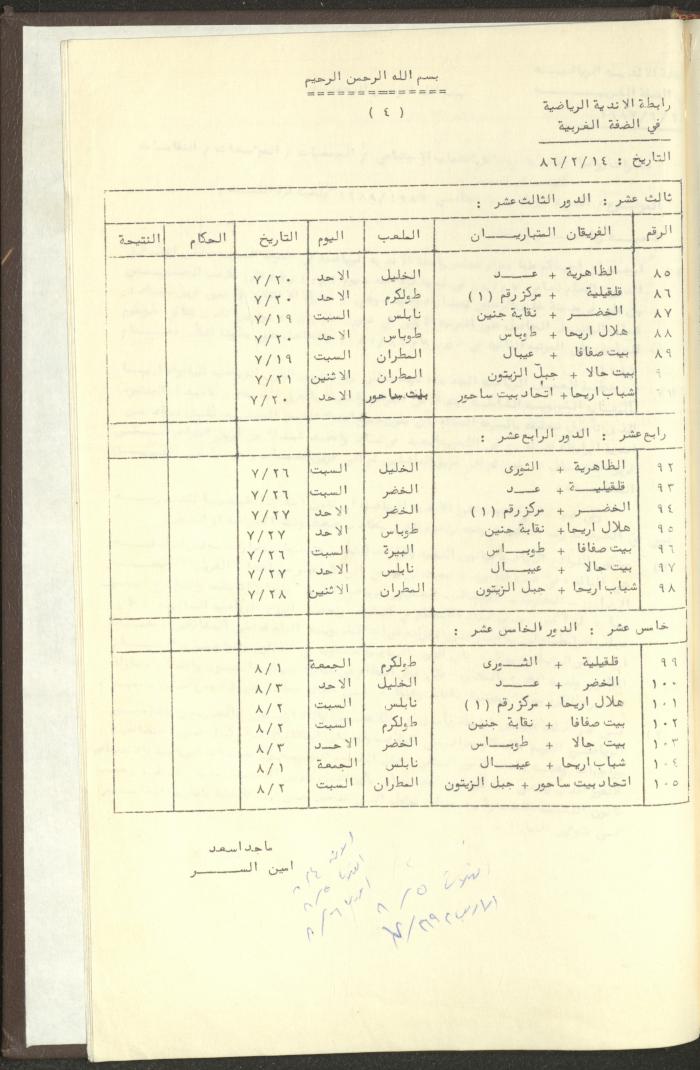 بسم الله الرحمن الرحيم
==============
( ٤ )
رابطة الاندية الرياضية
في الضفة الغربية
التاريخ : ٨٦/٢/١٤
ثالث عشر : الدور الثالث عشر :
الرقم الفريقان المتباريـــــان الملعب اليوم التاريخ الحكام النتيجة
٨٥ الظاهرية + عـــــد الخليل الاحد ٧/٢٠
٨٦ قلقيلية + مركز رقم (١) طولكرم الاحد ٧/٢٠
٨٧ الخضـــر + نقابة جنين نابلس السبت ٧/١٩
٨٨ هلال اريحا + طوباس طوباس الاحد ٧/٢٠
٨٩ بيت صفافا + عيبال المطران السبت ٧/١٩
٩ بيت جالا + جبل الزيتون المطران الاثنين ٧/٢١
شباب اريحا + اتحاد بيت ساحور بيت ساحور الاحد ٧/٢٠
رابع عشر : الدور الرابع عشر :
٩٢ الظاهرية + الثورى الخليل السبت ٧/٢٦
٩٣ قلقيليـــة + عـــــد الخضر السبت ٧/٢٦
٩٤ الخضـــر + مركز رقم (١) الخضر الاحد ٧/٢٧
٩٥ هلال اريحا + نقابة جنين طوباس الاحد ٧/٢٧
٩٦ بيت صفافا + طوبـــاس البيرة السبت ٧/٢٦
٩٧ بيت جالا + عيبـــال نابلس الاحد ٧/٢٧
٩٨ شباب اريحا + جبل الزيتون المطران الاثنين ٧/٢٨
خامس عشر : الدور الخامس عشر :
٩٩ قلقيلية + الثـــورى طولكرم الجمعة ٨/١
١٠٠ الخضر + عـــــد الخليل الاحد ٨/٣
١٠١ هلال اريحا + مركز رقم (١) نابلس السبت ٨/٢
١٠٢ بيت صفافا + نقابة جنين طولكرم السبت ٨/٢
١٠٣ بيت جالا + طوبـــاس الخضر الاحـــد ٨/٣
١٠٤ شباب اريحا + عيبـــال نابلس الجمعة ٨/١
١٠٥ اتحاد بيت ساحور + جبل الزيتون المطران السبت ٨/٢
ماجد اسعد
امين الســـــر
الثلاثاء ٨/٥